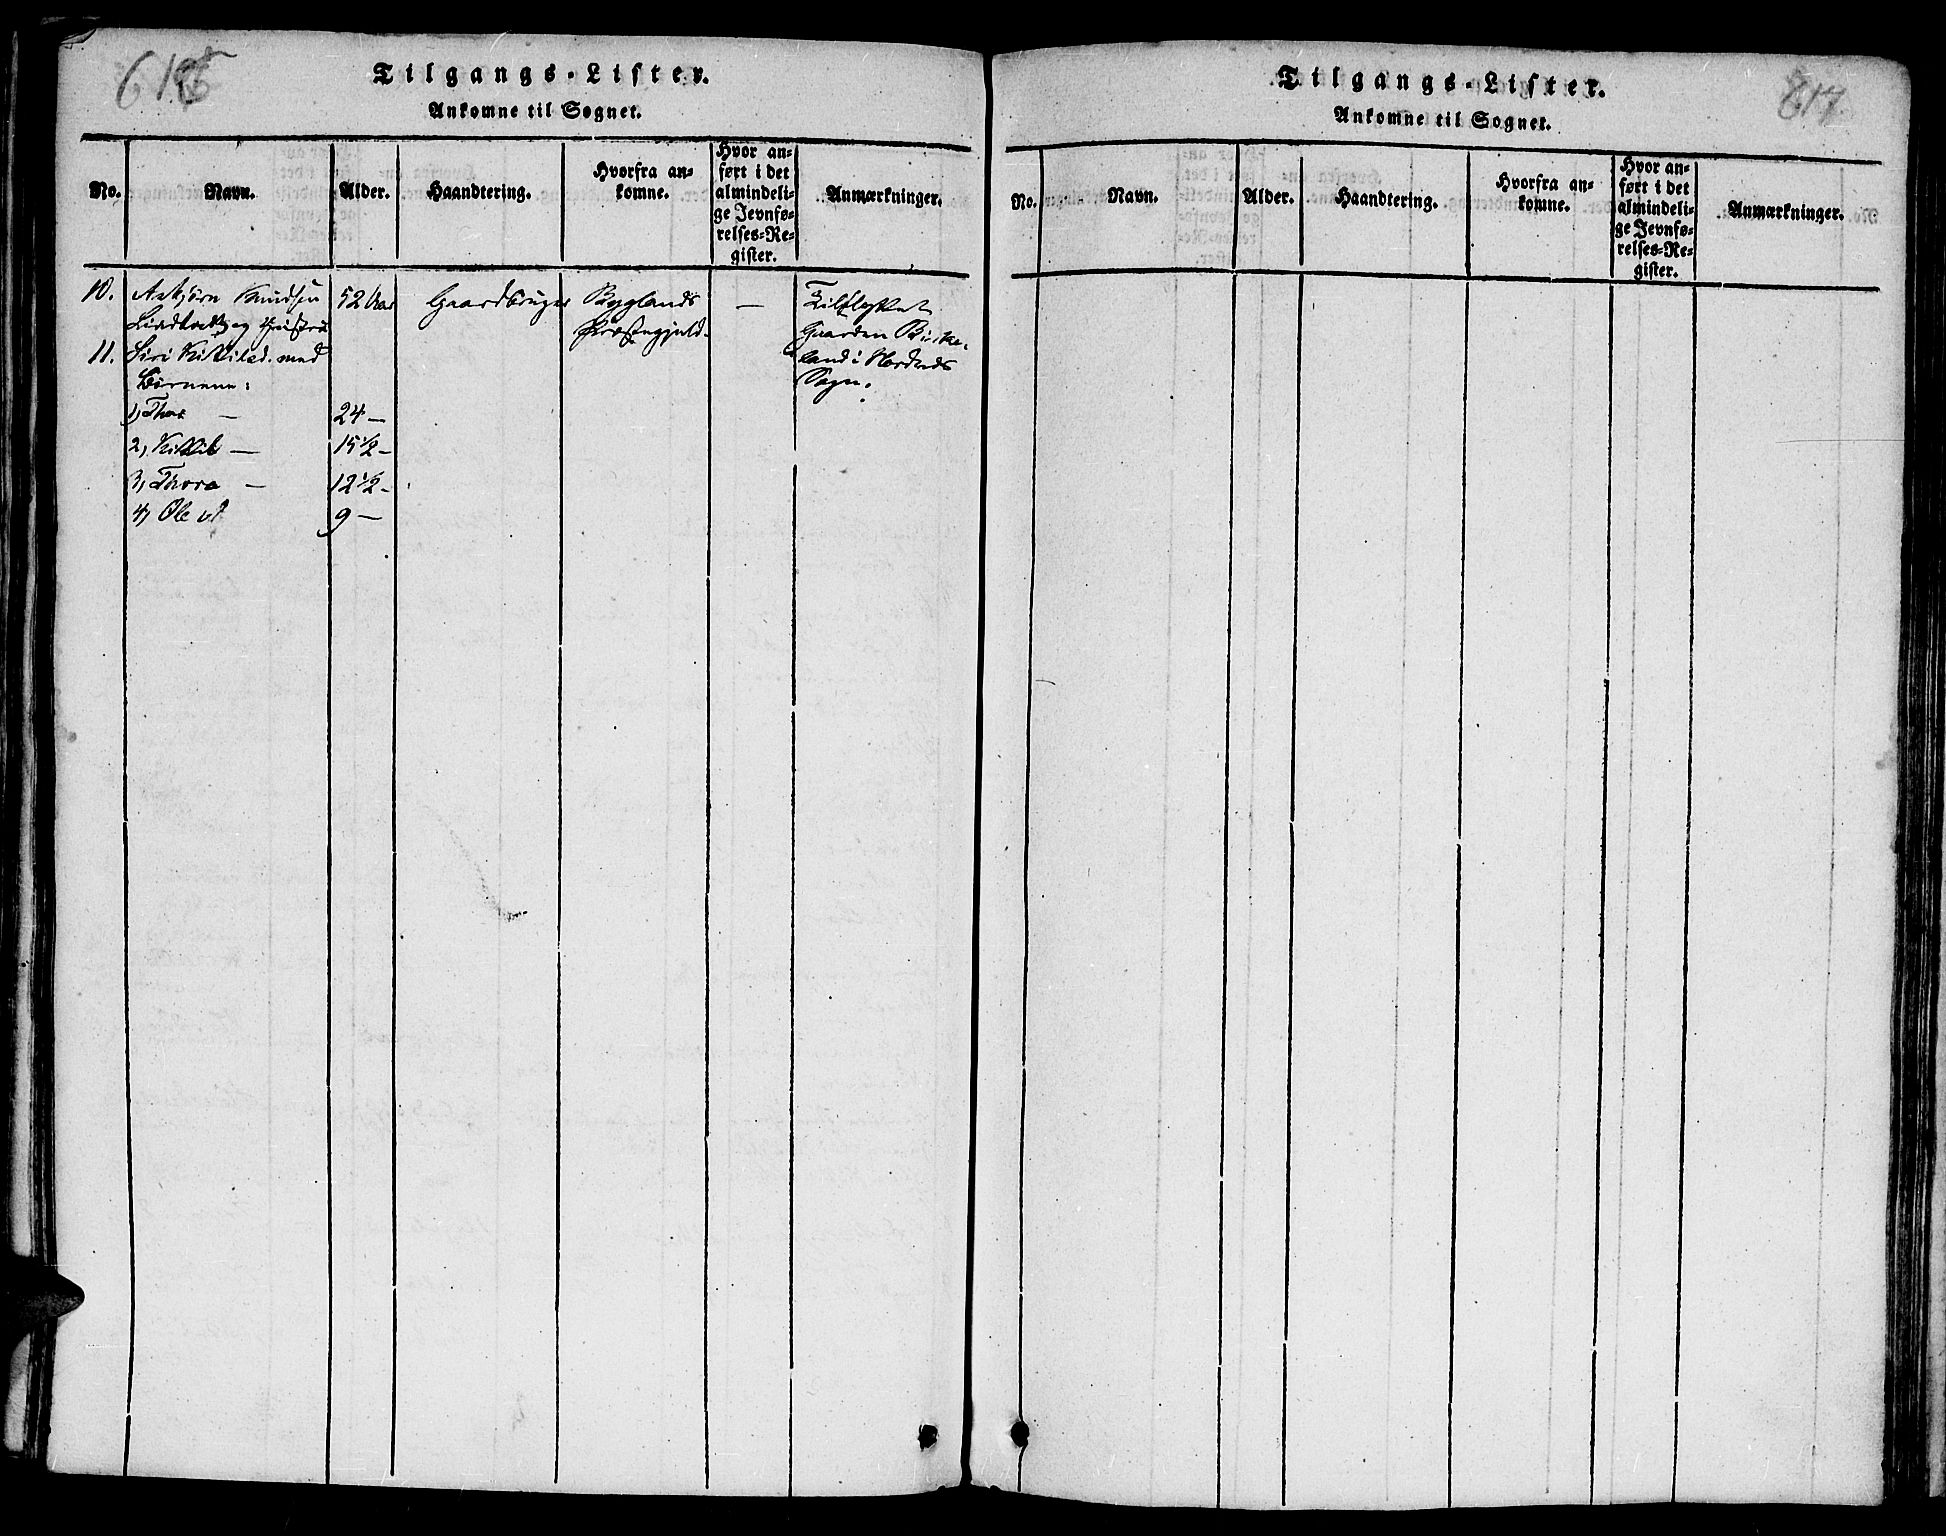 Tilgangs-Lister.
Ankomne til Sognet.
No. Navn. Alder. Haandtering. Hvorfra ankomne. Hvor anført i det almindelige Jevnførelses-Register. Anmærkninger.
10. Asbjørn Knudsen 52 Aar Gaardbruger Byglands — Tilflyttet
og Hustru Præstegjeld. Gaarden Birke-
11. Siri Kittilsd. med land i Herefoss
Børnene: Sogn.
1, Thor — 24 —
2, Kittil — 15 1/2 —
3, Thore — 12 1/2 —
4, Ole 9 —
617
Tilgangs-Lister.
Ankomne til Sognet.
No. Navn. Alder. Haandtering. Hvorfra ankomne. Hvor anført i det almindelige Jevnførelses-Register. Anmærkninger.